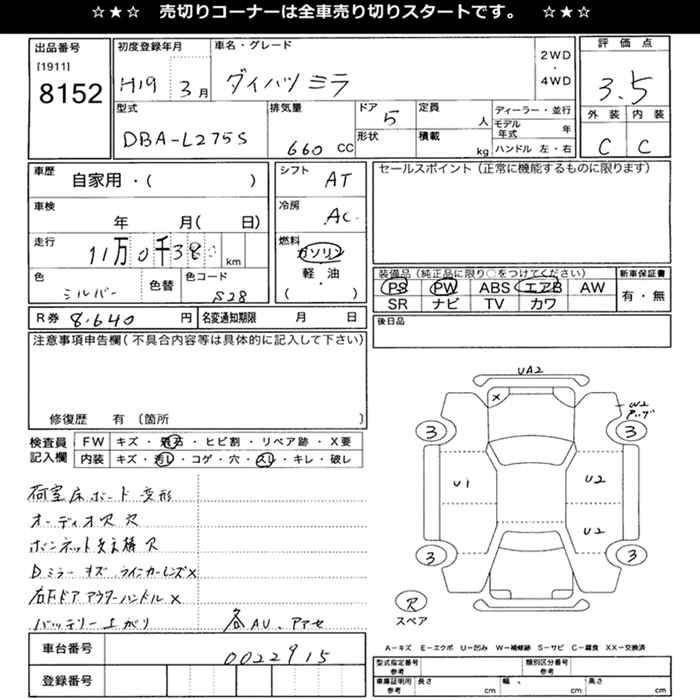 ☆★☆ 売切りコーナーは全車売り切りスタートです。 ☆★☆
出品番号 初度登録年月 車名・グレード 2WD・4WD 評価点
[1911]
8152 H19 3月 ダイハツ ミラ 3.5
型式 排気量 ドア 定員 ディーラー・並行 外装 内装
DBA-L275S 660 CC 5 人 モデル年式 年 C C
形状 積載 kg ハンドル 左・右
車歴 自家用・( ) シフト AT セールスポイント (正常に機能するものに限ります)
車検 年 月( 日) 冷房 AC
走行 11万0千38 km 燃料 ガソリン 軽・油 ( )
色 シルバー 色替 色コード S28
装備品 (純正品に限り○をつけてください) 新車保証書
PS PW ABS エアB AW 有・無
SR ナビ TV カワ
R券 8,640 円 名変通知期限 月 日 後日品
注意事項申告欄(不具合内容等は具体的に記入して下さい)
修復歴 有 (箇所 )
検査員記入欄 FW キズ・飛石・ヒビ割・リペア跡・X要
内装 キズ・汚レ・コゲ・穴・スレ・キレ・破レ
荷室床ボード変形
オーディオ穴 穴
ボンネット支え棒 穴
Dミラーキズ ウインカーレンズX
右Fドア アウターハンドルX
バッテリー上がり 各AU、アアセ
UA2
X W2
3 3
U1 U2
U2
3 3
スペア
A-キズ E-エクボ U-凹み W-補修跡 S-サビ C-腐食 XX-交換済
車台番号 0022915
登録番号
型式指定番号 参考 類別区分番号 参考
車庫証明用 参考 長さ cm 幅 cm 高さ cm